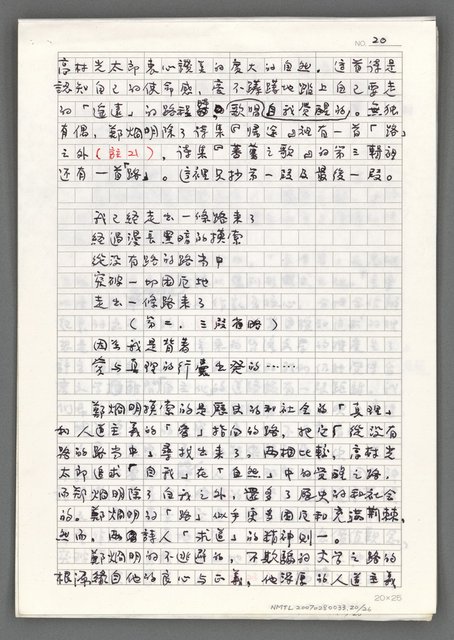 NO. 20
高村光太郎衷心讚美的廣大的自然。這首詩是
認知自己的使命感，毫不躊躇地踏上自己要走
的「道遠」的路程，歌唱自我覺醒的。無獨
有偶，鄭烱明除了詩集『歸途』裡有一首「路」
之外（註21），詩集『蕃薯之歌』的第三輯裡
還有一首「路」。這裡只抄第一段及最後一段。
我已經走出一條路來了
經過漫長黑暗的摸索
從沒有路的路當中
突破一切困厄地
走出一條路來了
（第二、三段省略）
因為我是背著
愛與真理的行囊出發的……
鄭烱明摸索的是歷史的和社會的「真理」
和人道主義的「愛」指向的路，把它「從沒有
路的路當中」尋找出來了。兩相比較，高村光
太郎追求「自我」在「自然」中的覺醒之路，
而鄭烱明除了自我之外，還多了歷史的和社會
的。鄭烱明的「路」似乎更多困厄和充滿荊棘，
然而，兩首詩人「求道」的精神則一。
鄭烱明的不逃避的、不欺騙的文學之路的
根源緣自他的良心與正義，他深厚的人道主義
20×25
NMTL20070280033.20/26